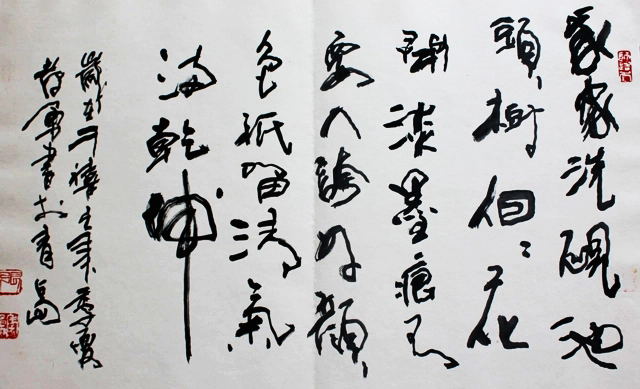 我家洗硯池
頭樹個々花
開淡墨痕不
要人誇好顏
色祇留清氣
滿乾坤
歲於千禧之年
軍書於青島